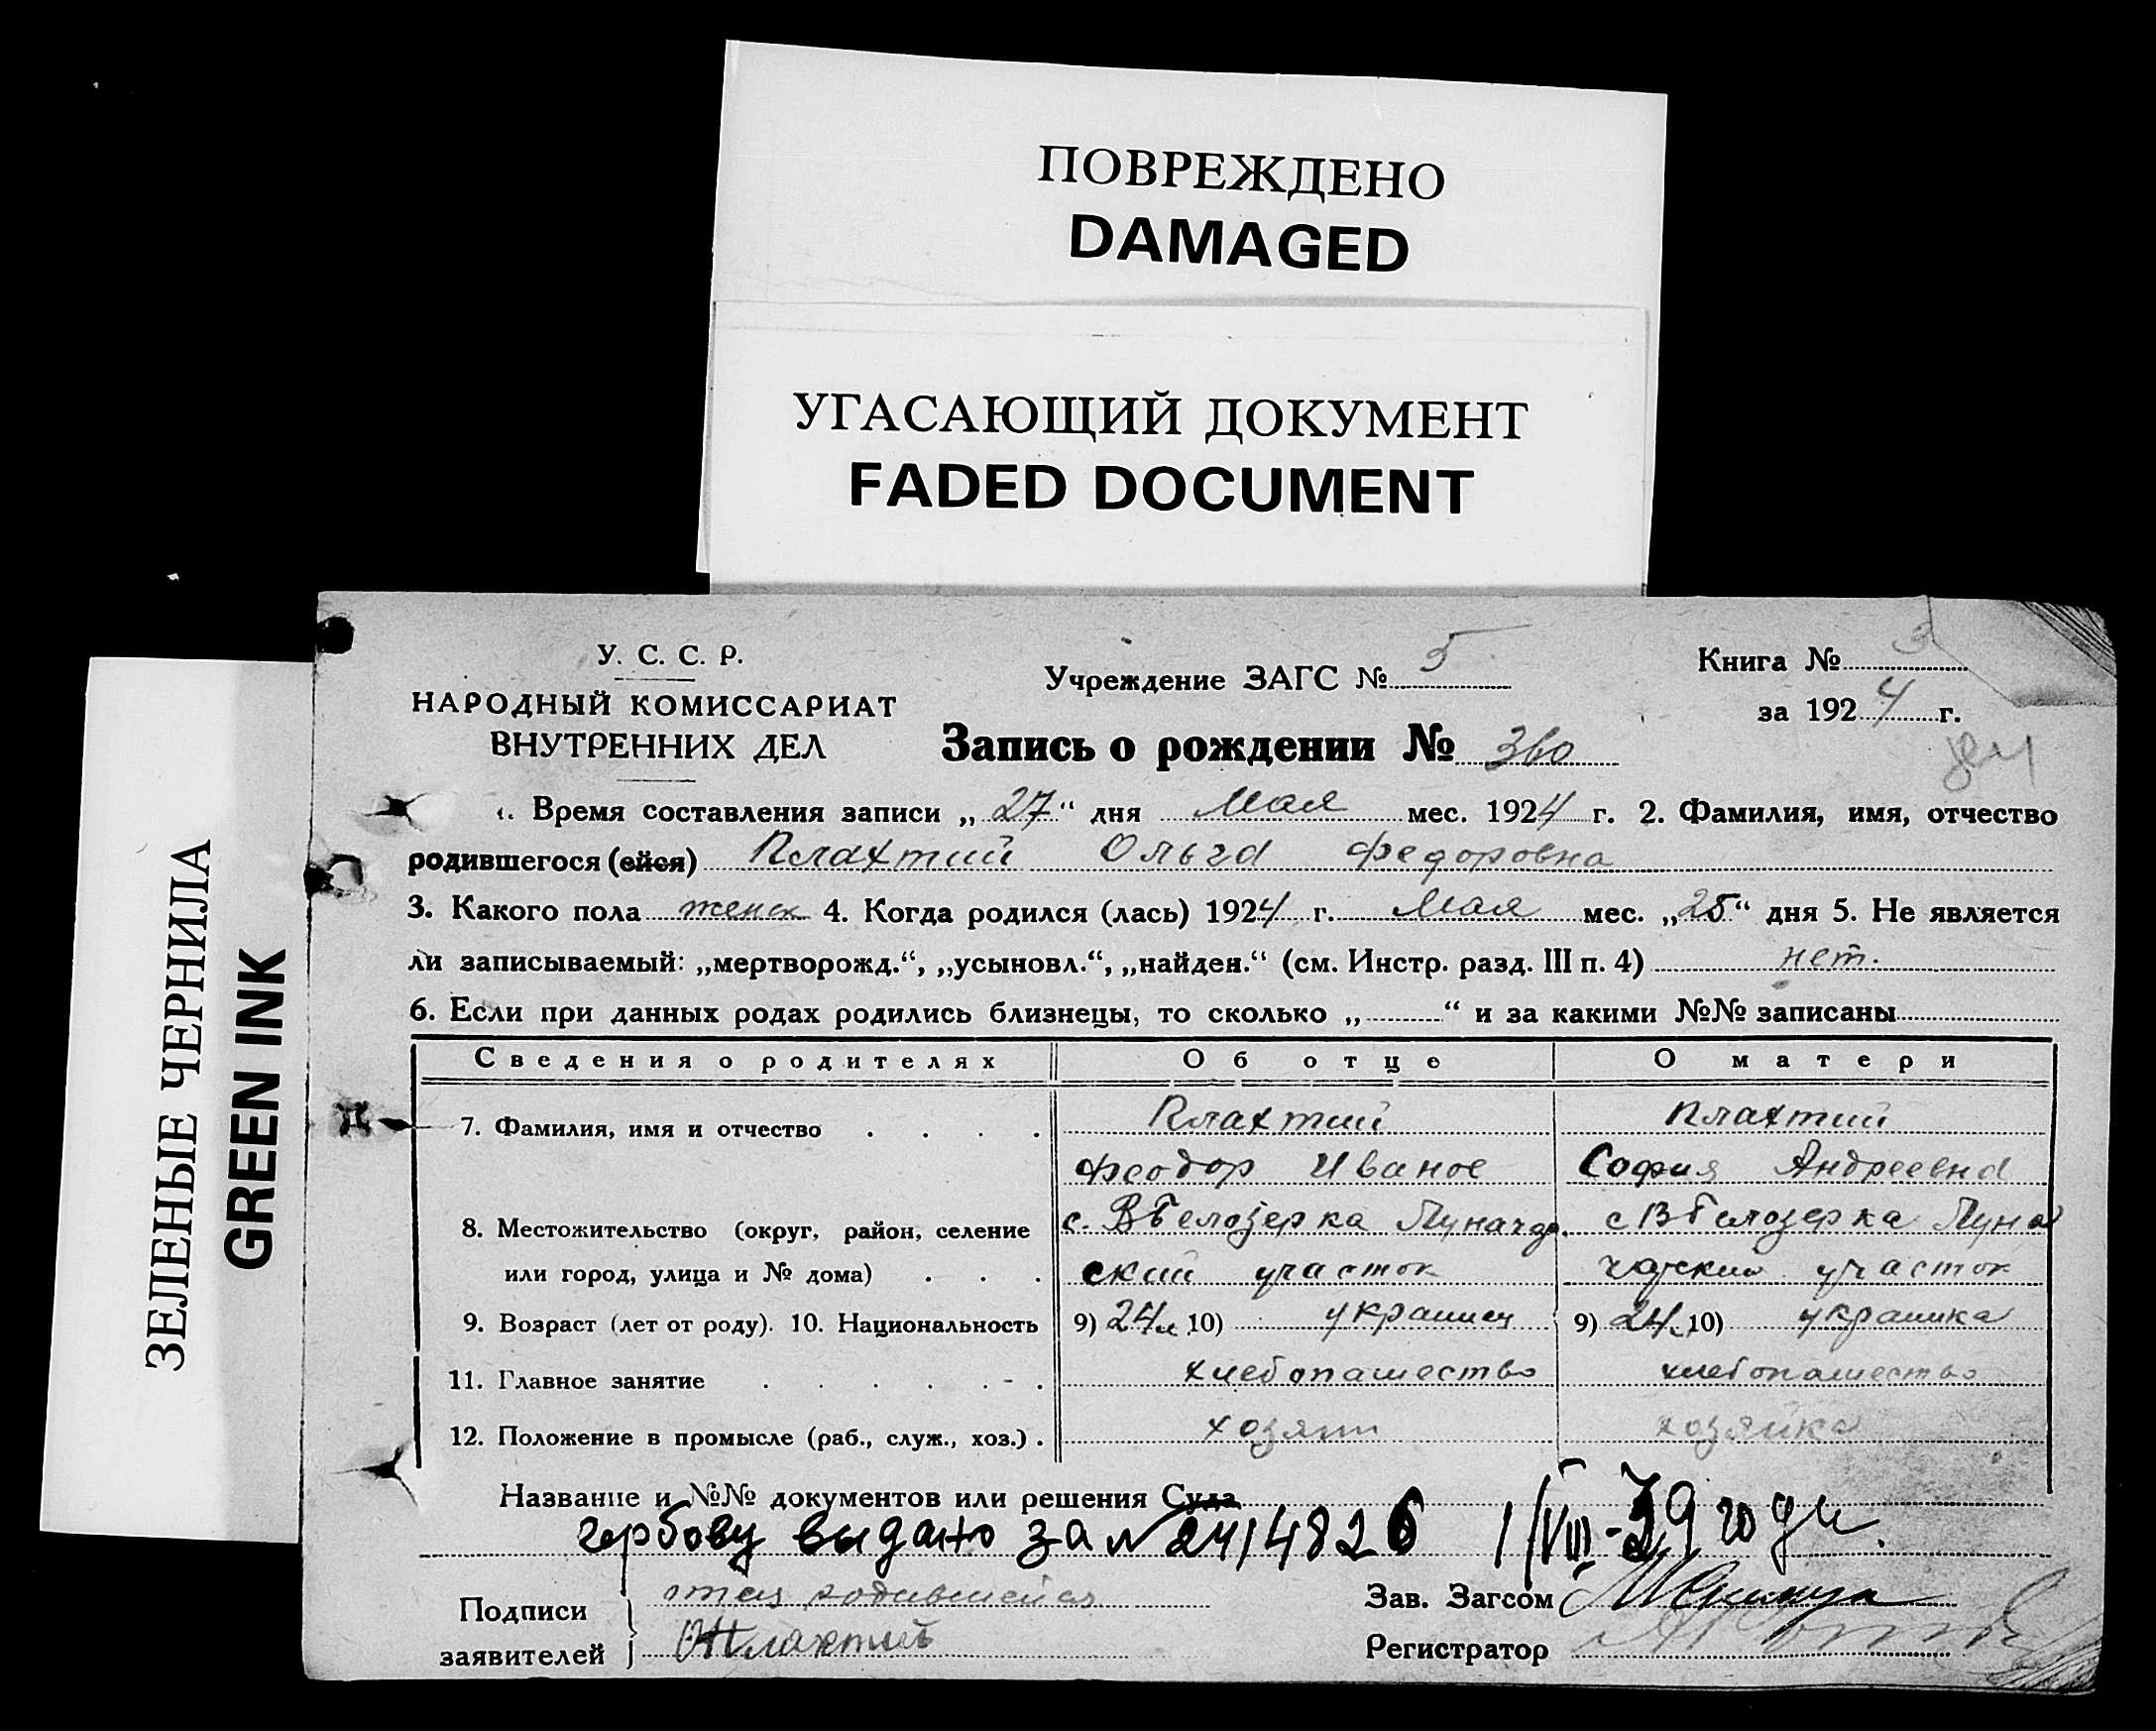 ПОВРЕЖДЕНО
DAMAGED
УГАСАЮЩИЙ ДОКУМЕНТ
FADED DOCUMENT
ЗЕЛЕНЫЕ ЧЕРНИЛА
GREEN INK
У. С. С. Р.
НАРОДНЫЙ КОМИССАРИАТ
ВНУТРЕННИХ ДЕЛ
Учреждение ЗАГС № 5
Книга № 3
за 1924 г.
Запись о рождении № 360
Время составления записи „27“ дня Мая мес. 1924 г. 2. Фамилия, имя, отчество
родившегося (ейся) Плахтий Ольга Федоровна
3. Какого пола женск 4. Когда родился (лась) 1924 г. Мая мес. „25“ дня 5. Не является
ли записываемый: „мертворожд.“, „усыновл.“, „найден.“ (см. Инстр. разд. III п. 4) нет.
6. Если при данных родах родились близнецы, то сколько „ “ и за какими №№ записаны
Сведения о родителях Об отце О матери
7. Фамилия, имя и отчество Плахтий Плахтий
Феодор Иванов София Андреевна
8. Местожительство (округ, район, селение с. В Белозерка Луначар с В Белозерка Луна
или город, улица и № дома) ский участок чарский участок
9. Возраст (лет от роду). 10. Национальность 9) 24 л. 10) украинец 9) 24 л. 10) украинка
11. Главное занятие хлебопашество хлебопашество
12. Положение в промысле (раб., служ., хоз.) хозяин хозяйка
Название и №№ документов или решения Суда
гербову выдано за № 2414826 1/VIII-39 году.
Подписи отец родившейся Зав. Загсом
заявителей Плахтий Регистратор